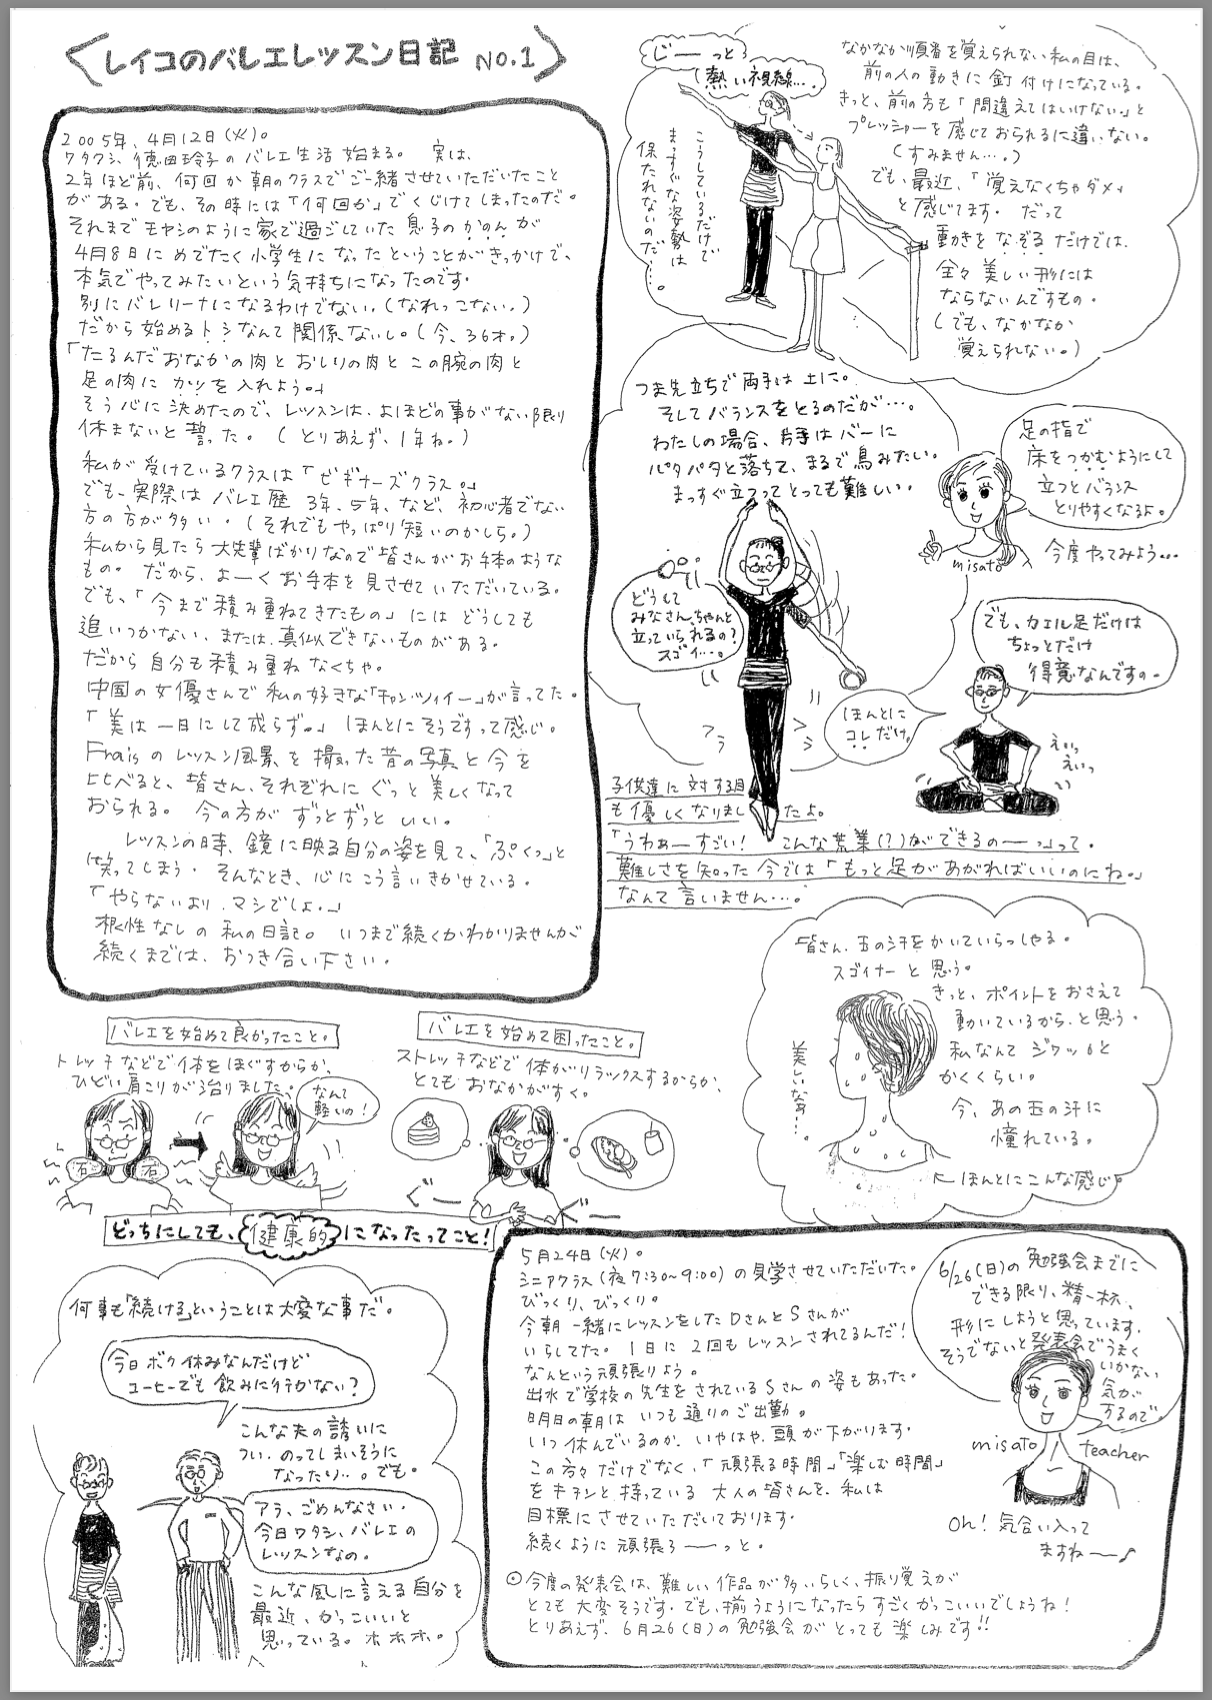 レイコのバレエレッスン日記 NO.1
2005年、4月12日(火)。
ワタクシ、徳田玲子のバレエ生活始まる。 実は、
2年ほど前、何回か朝のクラスでご一緒させていただいたこと
がある。でも、その時には「何回か」でくじけてしまったのだ。
それまでモヤシのように家で過ごしていた息子のかのんが
4月8日にめでたく小学生になったということがきっかけで、
本気でやってみたいという気持ちになったのです。
別にバレリーナになるわけでない。(なれっこない。)
だから始めるトシなんて関係ないし。(今、36才。)
「たるんだおなかの肉とおしりの肉とこの腕の肉と
足の肉にカツを入れよう。」
そう心に決めたので、レッスンは、よほどの事がない限り
休まないと誓った。(とりあえず、1年ね。)
私が受けているクラスは「ビギナーズクラス。」
でも、実際はバレエ歴3年、5年、など、初心者でない
方の方が多い。(それでもやっぱり短いのかしら。)
私から見たら大先輩ばかりなので皆さんがお手本のような
もの。だから、よーくお手本を見させていただいている。
でも、「今まで積み重ねてきたもの」にはどうしても
追いつかない、または、真似できないものがある。
だから自分も積み重ねなくちゃ。
中国の女優さんで私の好きな「チャン・ツィイー」が言ってた。
「美は一日にして成らず。」ほんとにそうですって感じ。
Fraisのレッスン風景を撮った昔の写真と今を
比べると、皆さん、それぞれにぐっと美しくなって
おられる。今の方がずっとずっといい。
レッスンの時、鏡に映る自分の姿を見て、「ぷくっ」と
笑ってしまう。そんなとき、心にこう言いきかせている。
「やらないより、マシでしょ。」
根性なしの私の日記。いつまで続くかわかりませんが
続くまでは、おつき合い下さい。
じーっと
熱い視線…
こうしているだけで
まっすぐな姿勢は
保たれないのだ…。
なかなか順番を覚えられない私の目は、
前の人の動きに釘付けになっている。
きっと、前の方も「間違えてはいけない」と
プレッシャーを感じておられるに違いない。
(すみません…。)
でも、最近、「覚えなくちゃダメ」
と感じてます。だって
動きをなぞるだけでは、
全々美しい形には
ならないんですもの。
(でも、なかなか
覚えられない。)
つま先立ちで両手は上に。
そしてバランスをとるのだが…。
わたしの場合、片手はバーに
パタパタと落ちて、まるで鳥みたい。
まっすぐ立つってとっても難しい。
足の指で
床をつかむようにして
立つとバランス
とりやすくなるよ。
misato
今度やってみよう…
どうして
みなさん、ちゃんと
立っていられるの?
スゴイ…。
フラ
でも、カエル足だけは
ちょっとだけ
得意なんですの。
ほんとに
コレだけ。
えいっ
えいっ
子供達に対する目
も優しくなりましたよ。
「うわぁーすごい! こんな荒業(?)ができるのーっ」って。
難しさを知った今では「もっと足があがればいいのにね。」
なんて言いません…。
皆さん、玉の汗をかいていらっしゃる。
スゴイナーと思う。
きっと、ポイントをおさえて
動いているから、と思う。
私なんてジワッと
かくくらい。
今、あの玉の汗に
憧れている。
美しいなぁ…
←ほんとにこんな感じ
バレエを始めて良かったこと。
ストレッチなどで体をほぐすからか、
ひどい肩こりが治りました。
なんて
軽いの!
石
石
バレエを始めて困ったこと。
ストレッチなどで体がリラックスするからか、
とてもおなかがすく。
ぐー
ぐー
どっちにしても、健康的になったってこと!
何事も「続ける」ということは大変な事だ。
今日ボク休みなんだけど
コーヒーでも飲みに行かない?
こんな夫の誘いに
つい、のってしまいそうに
なったり…。でも。
アラ、ごめんなさい。
今日ワタシ、バレエの
レッスンなの。
こんな風に言える自分を
最近、かっこいいと
思っている。ホホホ。
5月24日(火)。
シニアクラス(夜7:30~9:00)の見学させていただいた。
びっくり、びっくり。
今朝一緒にレッスンをしたDさんとSさんが
いらしてた。1日に2回もレッスンされてるんだ!
なんという頑張りよう。
出水で学校の先生をされているSさんの姿もあった。
明日の朝はいつも通りのご出勤。
いつ休んでいるのか。いやはや、頭が下がります。
この方々だけでなく、「頑張る時間」「楽しむ時間」
をキチンと持っている大人の皆さんを、私は
目標にさせていただいております。
続くように頑張ろーっと。
⊙今度の発表会は、難しい作品が多いらしく、振り覚えが
とても大変そうです。でも、揃うようになったらすごくかっこいいでしょうね!
とりあえず、6月26(日)の勉強会がとっても楽しみです!!
6/26(日)の勉強会までに
できる限り、精一杯、
形にしようと思っています。
そうでないと発表会でうまく
いかない
気が
するので。
misato teacher
Oh! 気合い入って
ますねー♪